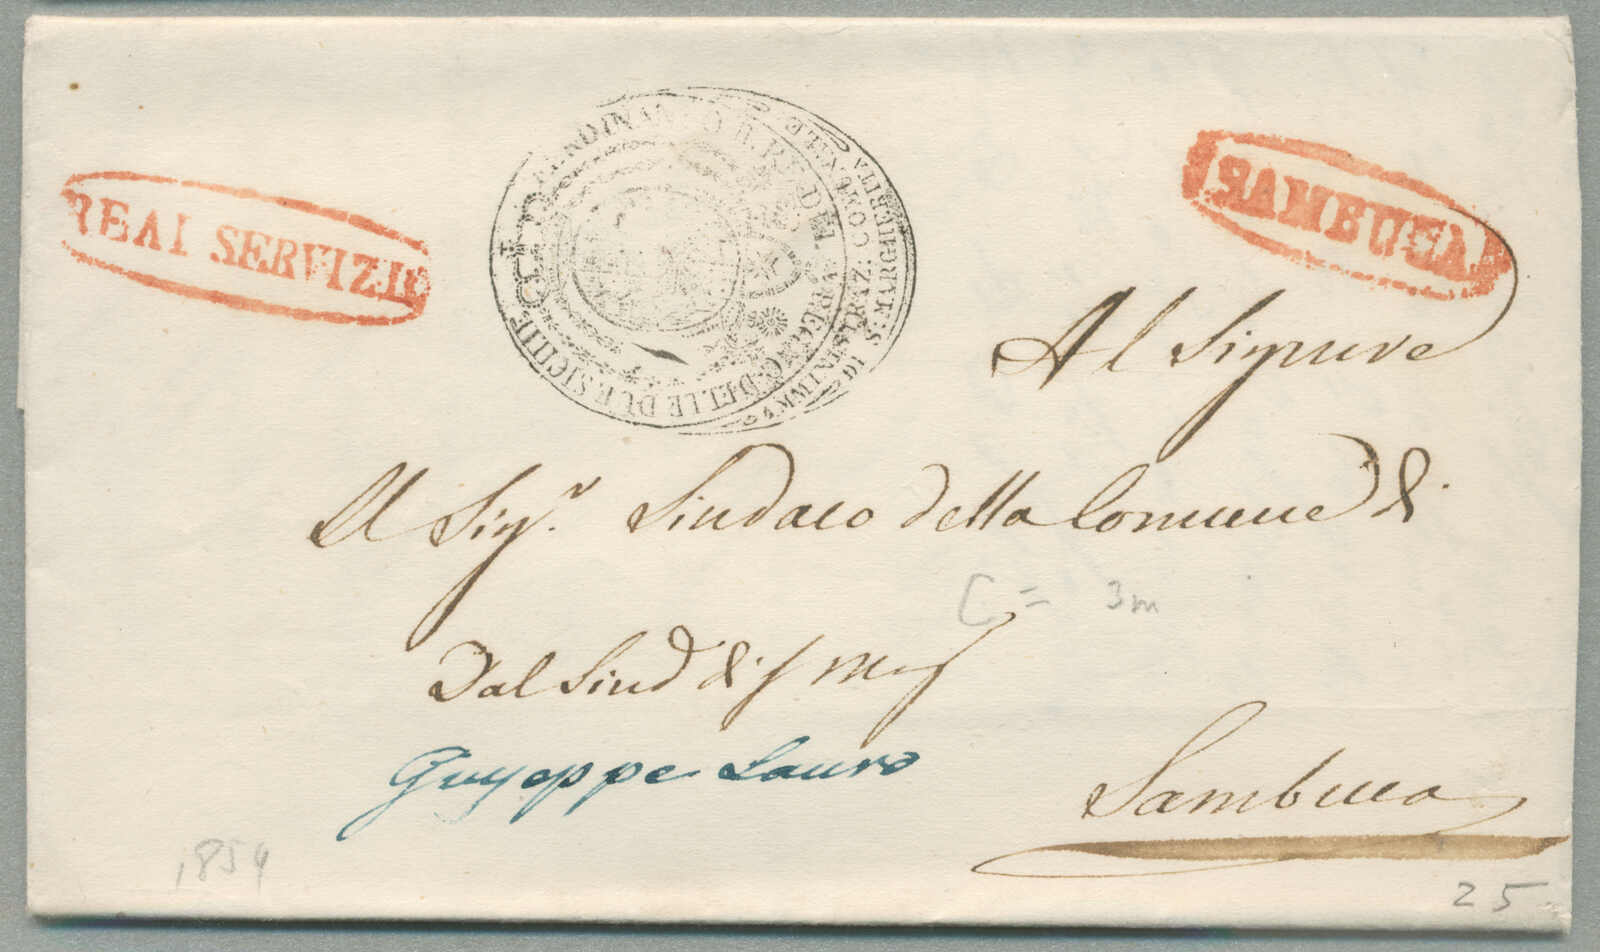 REAL SERVIZIO
FERDINANDO II. RE DEL REGNO DELLE DUE SICILIE
AMMINISTRAZ: COMUNALE
DI S: MARGHERITA
SAMBUCA
Al Signore
Al Sigr. Sindaco della Comune di
C = 3m
Dal Sind di
Giuseppe Lauro
Sambuca
1854
25